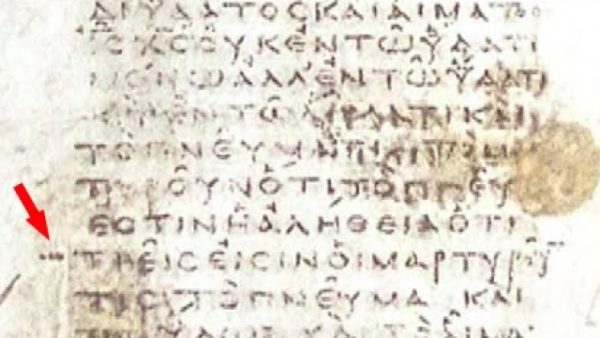 ΔΙΥΔΑΤΟϹΚΑΙΑΙΜΑΤΟ
ΙϹΧϹΟΥΚΕΝΤΩΥΔΑΤΙ
ΜΟΝΩΑΛΛΕΝΤΩΥΔΑΤΙ
ΕΝΤΩΑΙΜΑΤΙΚΑΙ
ΤΟΠΝΕΥΜΑ
ΤΥΡΟΥΝΟΤΙΤΟΠΝΕΥ
ΕϹΤΙΝΗΑΛΗΘΕΙΑΟΤΙ
ΤΡΕΙϹΕΙϹΙΝΟΙΜΑΡΤΥΡΟΥ
ΤΟΠΝΕΥΜΑ ΚΑΙ